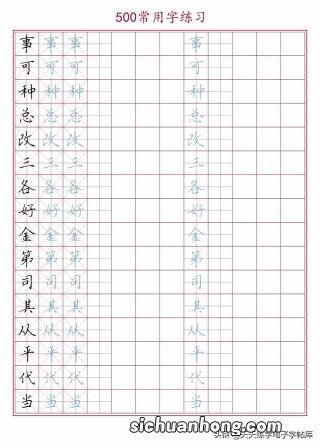 500常用字练习
事 事 事 事
可 可 可 可
种 种 种 种
总 总 总 总
改 改 改 改
三 三 三 三
各 各 各 各
好 好 好 好
金 金 金 金
第 第 第 第
司 司 司 司
其 其 其 其
从 从 从 从
平 平 平 平
代 代 代 代
当 当 当 当
sichuanhong.com